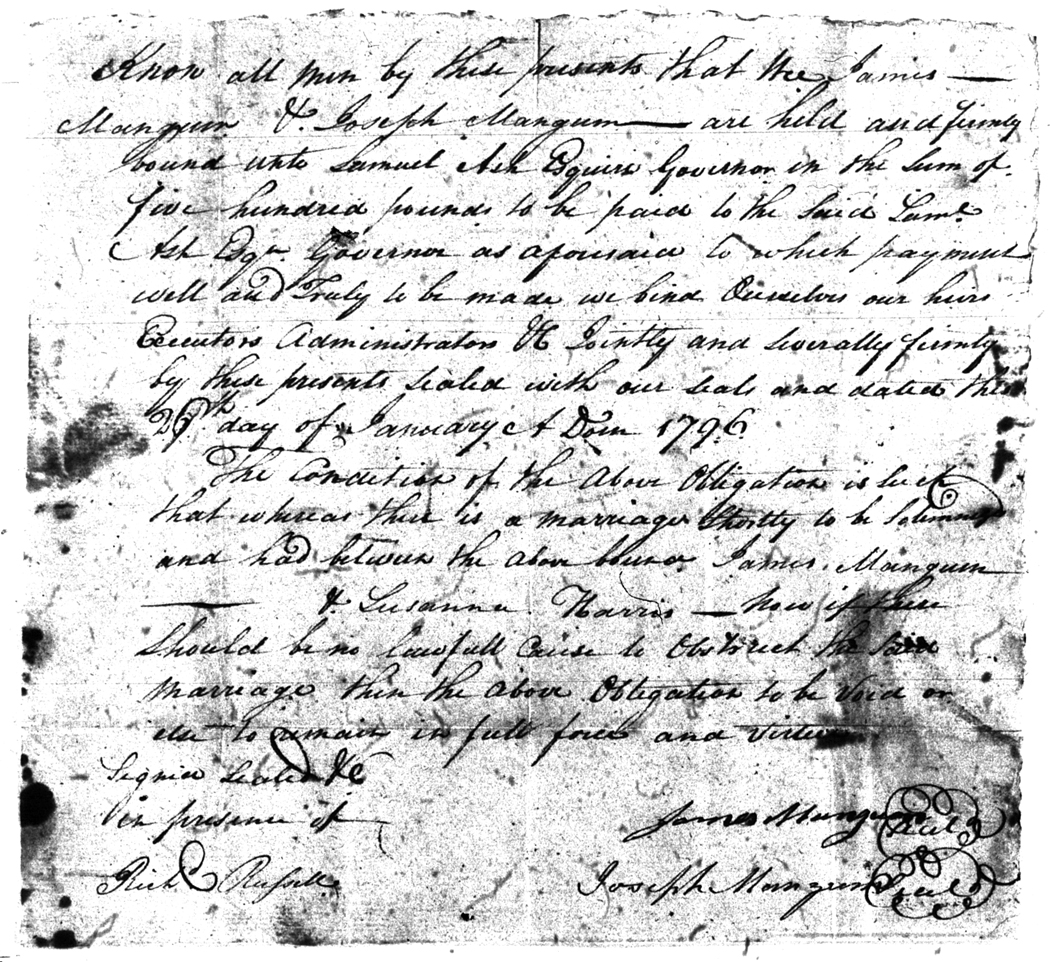 Know all men by these presents that We James
Mangum & Joseph Mangum are held and firmly
bound unto Samuel Ash Esquire Governor in the Sum of
five hundred pounds to be paid to the Said Saml.
Ash Esqr. Governor as aforesaid to which payment
well and Truly to be made we bind Ourselves our heirs
Executors Administrators &C Jointly and severally firmly
by these presents sealed with our seals and dated this
day of January A Dom 1796
The Condition of the Above Obligation is such
that whereas there is a marriage Shortly to be Solemnized
and had between the above bound James Mangum
& Susanna Harris now if there
Should be no lawfull Cause to Obstruct the Said
marriage then the above Obligation to be Void or
else to remain in full force and Virtue
Signed Sealed &C
in presence of
James Mangum Seal
Richd Russell
Joseph Mangum Seal